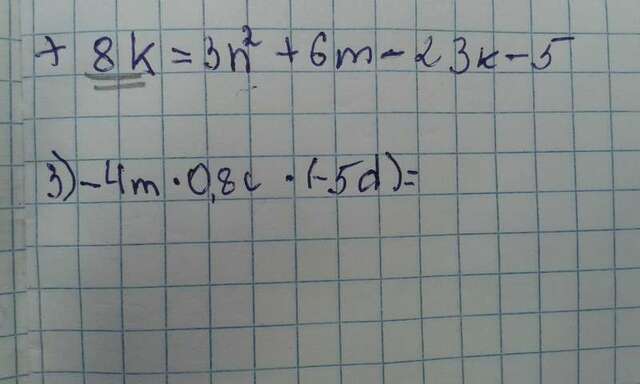 + 8k = 3n² + 6m - 23k - 5
3) - 4m · 0,8c · (-5d) =